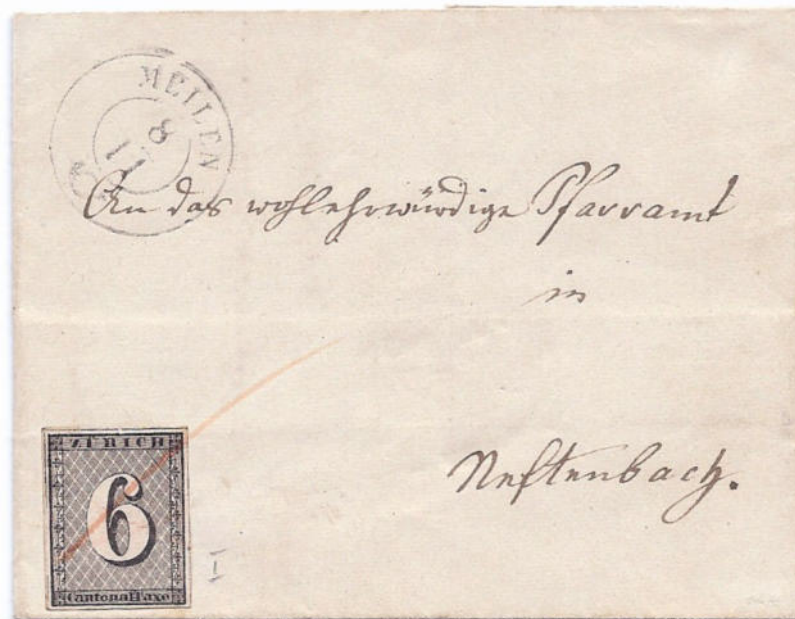 MEILEN
8
11
An das wohlehrwürdige Pfarramt
in
Neftenbach.
ZÜRICH
6
Cantonal-Taxe
I